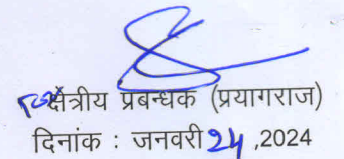 क्षेत्रीय प्रबन्धक (प्रयागराज)
दिनांक : जनवरी 24 ,2024